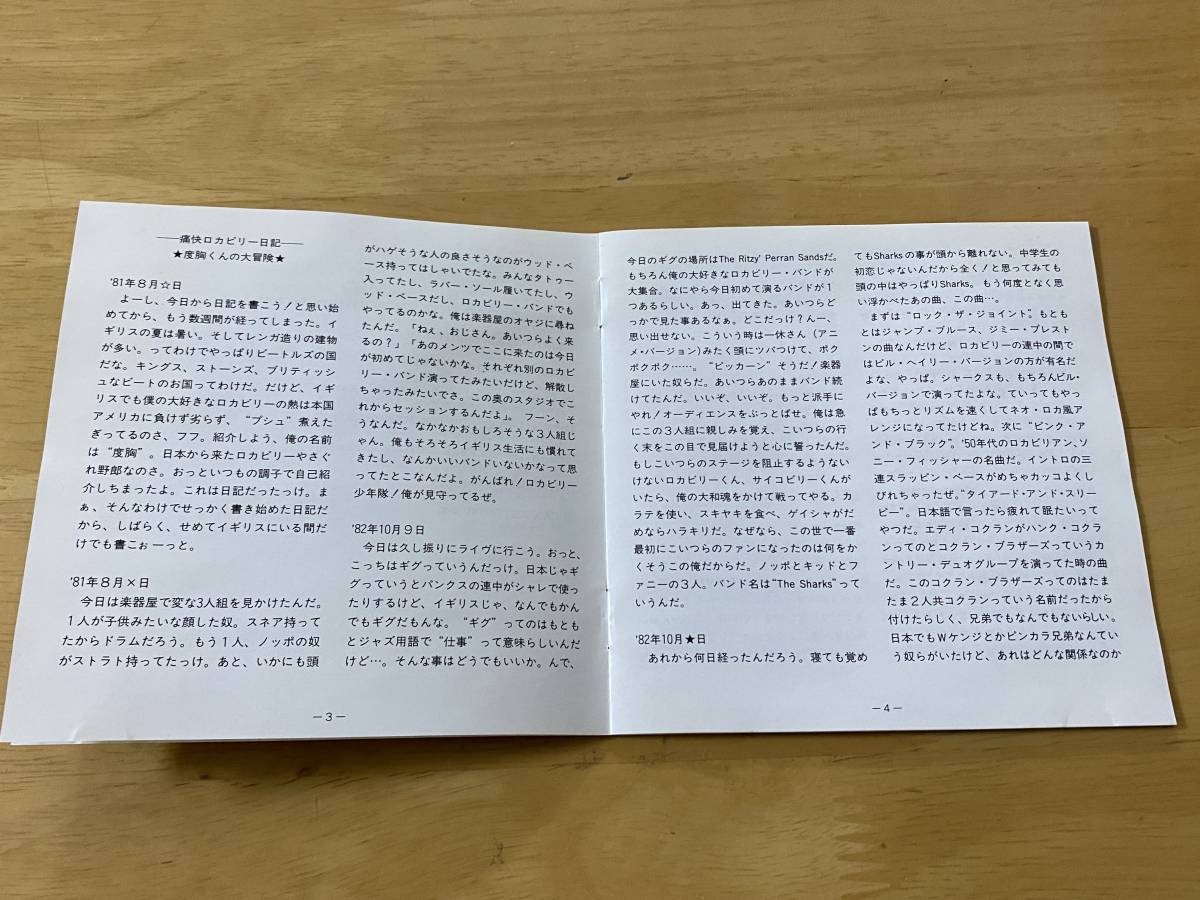 ——痛快ロカビリー日記——
★度胸くんの大冒険★
'81年８月☆日
よーし、今日から日記を書こう！と思い始
めてから、もう数週間が経ってしまった。イ
ギリスの夏は暑い。そしてレンガ造りの建物
が多い。ってわけでやっぱりビートルズの国
だな。キングス、ストーンズ、ブリティッシ
ュなビートのお国ってわけだ。だけど、イギ
リスでも僕の大好きなロカビリーの熱は本国
アメリカに負けず劣らず、“プシュ”煮えた
ぎってるのさ、フフ。紹介しよう、俺の名前
は“度胸”。日本から来たロカビリーやさぐ
れ野郎なのさ。おっといつもの調子で自己紹
介しちまったよ。これは日記だったっけ。ま
ぁ、そんなわけでせっかく書き始めた日記だ
から、しばらく、せめてイギリスにいる間だ
けでも書こぉーっと。
'81年８月×日
今日は楽器屋で変な3人組を見かけたんだ。
１人が子供みたいな顔した奴。スネア持って
たからドラムだろう。もう１人、ノッポの奴
がストラト持ってたっけ。あと、いかにも頭
がハゲそうな人の良さそうなのがウッド・ベ
ース持ってはしゃいでたな。みんなタトゥー
入ってたし、ラバー・ソール履いてたし、ウ
ッド・ベースだし、ロカビリー・バンドでも
やってるのかな。俺は楽器屋のオヤジに尋ね
たんだ。「ねぇ、おじさん。あいつらよく来
るの？」「あのメンツでここに来たのは今日
が初めてじゃないかな。それぞれ別のロカビ
リー・バンド演ってたみたいだけど、解散し
ちゃったみたいでさ。この奥のスタジオでこ
れからセッションするんだよ」。フーン、そ
うなんだ。なかなかおもしろそうな３人組じ
ゃん。俺もそろそろイギリス生活にも慣れて
きたし、なんかいいバンドいないかなって思
ってたとこなんだよ。がんばれ！ロカビリー
少年隊！俺が見守ってるぜ。
'82年10月９日
今日は久し振りにライヴに行こう。おっと、
こっちはギグっていうんだっけ。日本じゃギ
グっていうとパンクスの連中がシャレで使っ
たりするけど、イギリスじゃ、なんでもかん
でもギグだもんな。“ギグ”ってのはもとも
とジャズ用語で“仕事”って意味らしいんだ
けど…。そんな事はどうでもいいか。んで、
—３—
今日のギグの場所はThe Ritzy' Perran Sandsだ。
もちろん俺の大好きなロカビリー・バンドが
大集合。なにやら今日初めて演るバンドが１
つあるらしい。あっ、出てきた。あいつらど
っかで見た事あるなぁ。どこだっけ？んー、
思い出せない。こういう時は一休さん（アニ
メ・バージョン)みたく頭にツバつけて、ポク
ポクポク……。“ピッカーン”そうだ！楽器
屋にいた奴らだ。あいつらあのままバンド続
けてたんだ。いいぞ、いいぞ。もっと派手に
やれ！オーディエンスをぶっとばせ。俺は急
にこの３人組に親しみを覚え、こいつらの行
く末をこの目で見届けようと心に誓ったんだ。
もしこいつらのステージを阻止するようない
けないロカビリーくん、サイコビリーくんが
いたら、俺の大和魂をかけて戦ってやる。カ
ラテを使い、スキヤキを食べ、ゲイシャがだ
めならハラキリだ。なぜなら、この世で一番
最初にこいつらのファンになったのは何をか
くそうこの俺だからだ。ノッポとキッドとフ
ァニーの３人。バンド名は“The Sharks”って
いうんだ。
'82年10月★日
あれから何日経ったんだろう。寝ても覚め
てもSharksの事が頭から離れない。中学生の
初恋じゃないんだから全く！と思ってみても
頭の中はやっぱりSharks。もう何度となく思
い浮かべたあの曲、この曲…。
まずは“ロック・ザ・ジョイント”。もとも
とはジャンプ・ブルース、ジミー・プレスト
ンの曲なんだけど、ロカビリーの連中の間で
はビル・ヘイリー・バージョンの方が有名だ
よな、やっぱ。シャークスも、もちろんビル・
バージョンで演ってたなぁ。ていってもやっ
ぱもちっとリズムを速くしてネオ・ロカ風ア
レンジになってたけどね。次に“ピンク・ア
ンド・ブラック”。'50年代のロカビリアン、ソ
ニー・フィッシャーの名曲だ。イントロの三
連スラッピン・ベースがめちゃカッコよくし
びれちゃったぜ。“タイアード・アンド・スリー
ピー”。日本語で言ったら疲れて眠たいって
やつだ。エディ・コクランがハンク・コクラ
ンってのとコクラン・ブラザーズっていうカ
ントリー・デュオグループを演ってた時の曲
だ。このコクラン・ブラザーズってのはたま
たま２人共コクランっていう名前だったから
付けたらしく、兄弟でもなんでもないらしい。
日本でもＷケンジとかピンカラ兄弟なんてい
う奴らがいたけど、あれはどんな関係なのか
—４—